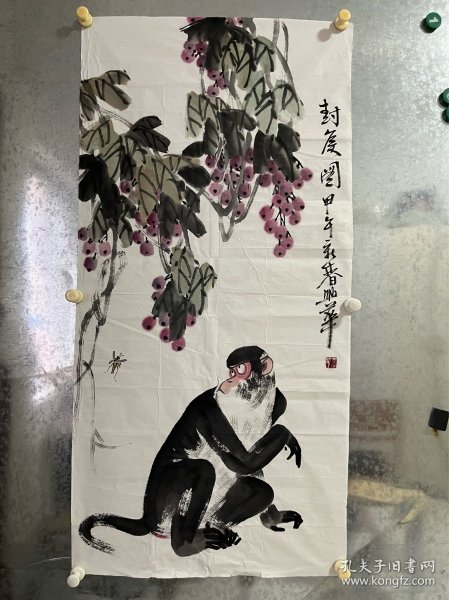 封侯图甲午新春
孔夫子旧书网
www.kongfz.com